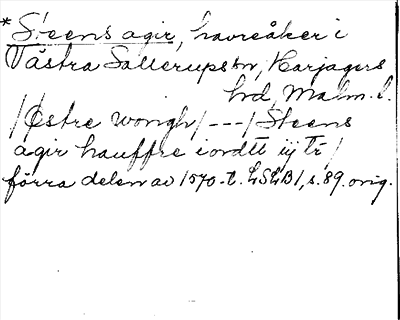 *Steens agir, havreåker i
Västra Sallerups sn, Harjagers
hd, Malm. l.
/Østre wongh/ --- / Steens
agir hauffre iordtt iij tr/
förra delen av 1570-t. LSLB1, s. 89. orig.